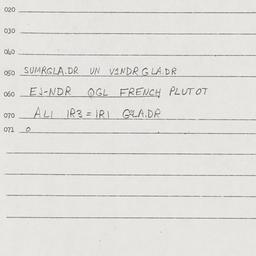 020
030
040
050 SUMRGLA.DR UN VINDRGLA.DR
060 EJ-NDR OGL FRENCH PLUTOT
070 ALI IR3=IRI GLA.DR
071 0